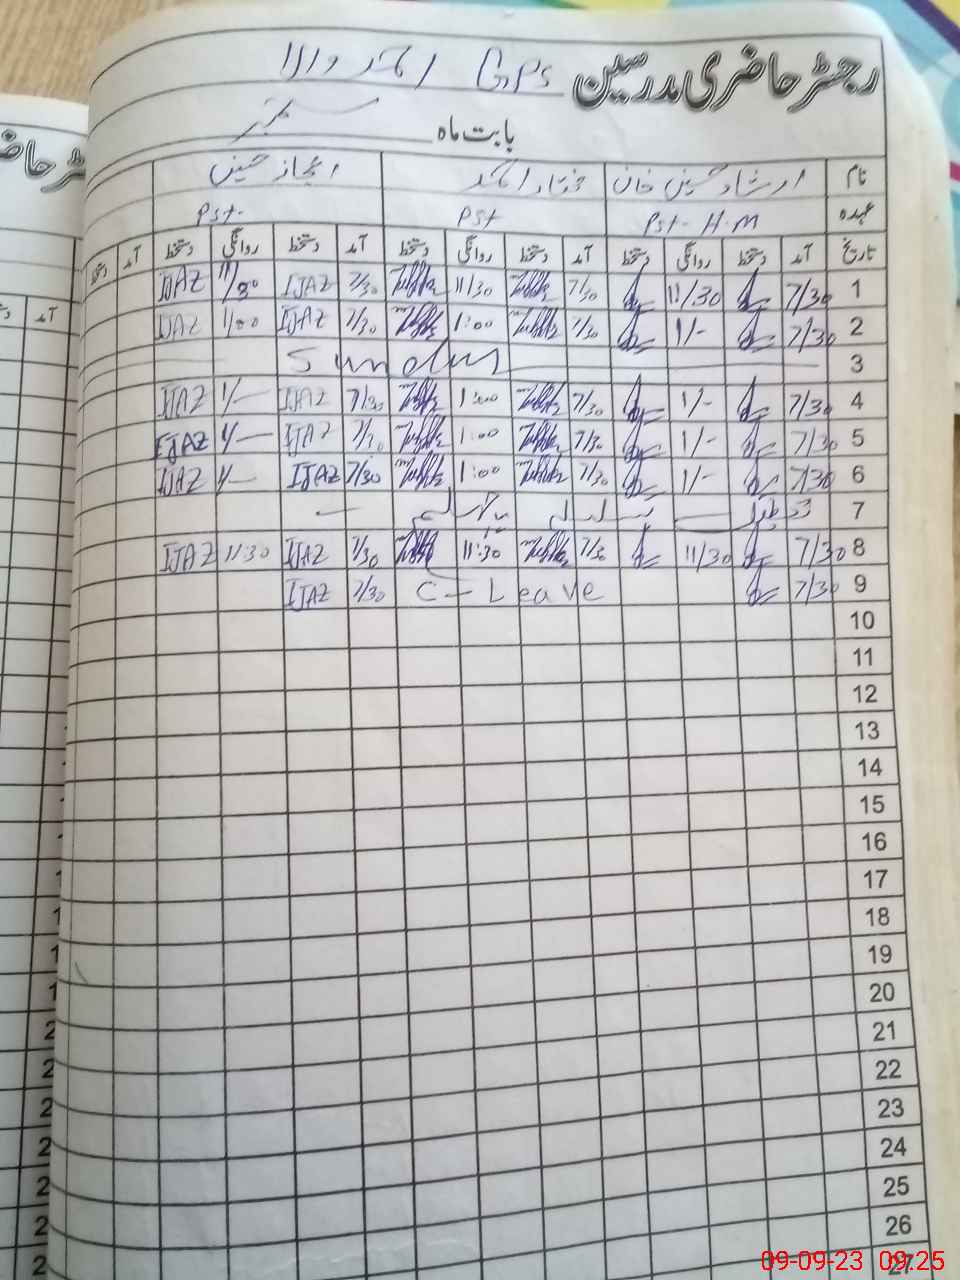 رجسٹر حاضری مدرسین GPS احمد والا
بابت ماہ ستمبر
نام ارشاد حسین خان مختار احمد اعجاز حسین
عہدہ Pst-H.M Pst Pst-
تاریخ آمد دستخط روانگی دستخط آمد دستخط روانگی دستخط آمد دستخط روانگی دستخط آمد دستخط
1 7/30 11/30 7/30 11/30 7/30 IJAZ 11/30 IJAZ
2 7/30 1/- 7/30 1:00 7/30 IJAZ 1/00 IJAZ
3 Sunday
4 7/30 1/- 7/30 1:00 7/30 IJAZ 1/- IJAZ
5 7/30 1/- 7/30 1:00 7/30 IJAZ 1/- IJAZ
6 7/30 1/- 7/30 1:00 7/30 IJAZ 1/- IJAZ
7 تعطیل بسلسلہ
8 7/30 11/30 7/30 11:30 7/30 IJAZ 11:30 IJAZ
9 7/30 C-Leave 7/30 IJAZ
10
11
12
13
14
15
16
17
18
19
20
21
22
23
24
25
26
27
09-09-23 09:25